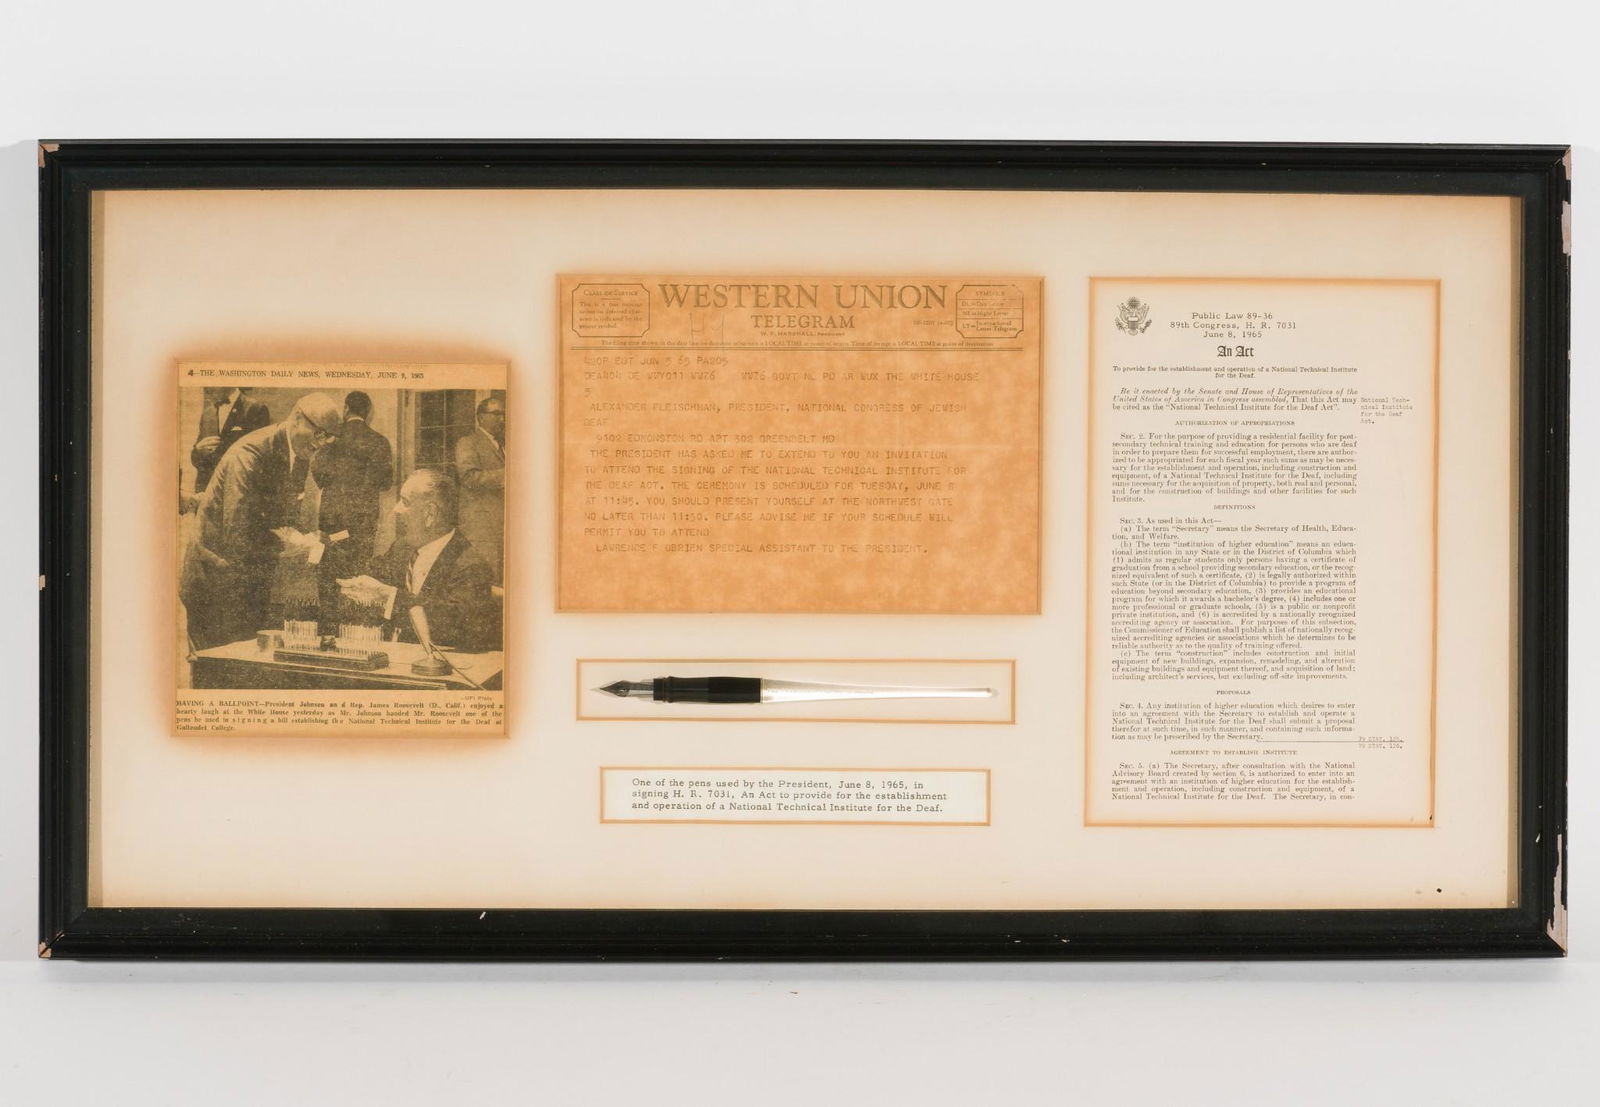 4—THE WASHINGTON DAILY NEWS, WEDNESDAY, JUNE 9, 1965
—UPI Photo
HAVING A BALLPOINT—President Johnson an d Rep. James Roosevelt (D., Calif.) enjoyed a
hearty laugh at the White House yesterday as Mr. Johnson handed Mr. Roosevelt one of the
pens he used in signing a bill establishing the National Technical Institute for the Deaf at
Gallaudet College.
CLASS OF SERVICE
This is a fast message
unless its deferred char-
acter is indicated by the
proper symbol.
WESTERN UNION
TELEGRAM
W. P. MARSHALL, PRESIDENT
SYMBOLS
DL=Day Letter
NL=Night Letter
LT=International
Letter Telegram
The filing time shown in the date line on domestic telegrams is LOCAL TIME at point of origin. Time of receipt is LOCAL TIME at point of destination
EDT JUN 5 65 PA205
DEA404 DE WWY011 WWZ6 WWZ6 GOVT NL PD AR WUX THE WHITE HOUSE
5
ALEXANDER FLEISCHMAN, PRESIDENT, NATIONAL CONGRESS OF JEWISH
DEAF
9102 EDMONSTON RD APT 302 GREENBELT MD
THE PRESIDENT HAS ASKED ME TO EXTEND TO YOU AN INVITATION
TO ATTEND THE SIGNING OF THE NATIONAL TECHNICAL INSTITUTE FOR
THE DEAF ACT. THE CEREMONY IS SCHEDULED FOR TUESDAY, JUNE 8
AT 11:45. YOU SHOULD PRESENT YOURSELF AT THE NORTHWEST GATE
NO LATER THAN 11:30. PLEASE ADVISE ME IF YOUR SCHEDULE WILL
PERMIT YOU TO ATTEND
LAWRENCE F OBRIEN SPECIAL ASSISTANT TO THE PRESIDENT.
One of the pens used by the President, June 8, 1965, in
signing H. R. 7031, An Act to provide for the establishment
and operation of a National Technical Institute for the Deaf.
Public Law 89-36
89th Congress, H. R. 7031
June 8, 1965
An Act
To provide for the establishment and operation of a National Technical Institute
for the Deaf.
Be it enacted by the Senate and House of Representatives of the
United States of America in Congress assembled, That this Act may
be cited as the "National Technical Institute for the Deaf Act".
National Tech-
nical Institute
for the Deaf
Act.
AUTHORIZATION OF APPROPRIATIONS
SEC. 2. For the purpose of providing a residential facility for post-
secondary technical training and education for persons who are deaf
in order to prepare them for successful employment, there are author-
ized to be appropriated for each fiscal year such sums as may be neces-
sary for the establishment and operation, including construction and
equipment, of a National Technical Institute for the Deaf, including
sums necessary for the acquisition of property, both real and personal,
and for the construction of buildings and other facilities for such
Institute.
DEFINITIONS
SEC. 3. As used in this Act—
(a) The term "Secretary" means the Secretary of Health, Educa-
tion, and Welfare.
(b) The term "institution of higher education" means an educa-
tional institution in any State or in the District of Columbia which
(1) admits as regular students only persons having a certificate of
graduation from a school providing secondary education, or the recog-
nized equivalent of such a certificate, (2) is legally authorized within
such State (or in the District of Columbia) to provide a program of
education beyond secondary education, (3) provides an educational
program for which it awards a bachelor's degree, (4) includes one or
more professional or graduate schools, (5) is a public or nonprofit
private institution, and (6) is accredited by a nationally recognized
accrediting agency or association. For purposes of this subsection,
the Commissioner of Education shall publish a list of nationally recog-
nized accrediting agencies or associations which he determines to be
reliable authority as to the quality of training offered.
(c) The term "construction" includes construction and initial
equipment of new buildings, expansion, remodeling, and alteration
of existing buildings and equipment thereof, and acquisition of land;
including architect's services, but excluding off-site improvements.
PROPOSALS
SEC. 4. Any institution of higher education which desires to enter
into an agreement with the Secretary to establish and operate a
National Technical Institute for the Deaf shall submit a proposal
therefor at such time, in such manner, and containing such informa-
tion as may be prescribed by the Secretary.
79 STAT. 125.
79 STAT. 126.
AGREEMENT TO ESTABLISH INSTITUTE
SEC. 5. (a) The Secretary, after consultation with the National
Advisory Board created by section 6, is authorized to enter into an
agreement with an institution of higher education for the establish-
ment and operation, including construction and equipment, of a
National Technical Institute for the Deaf. The Secretary, in con-